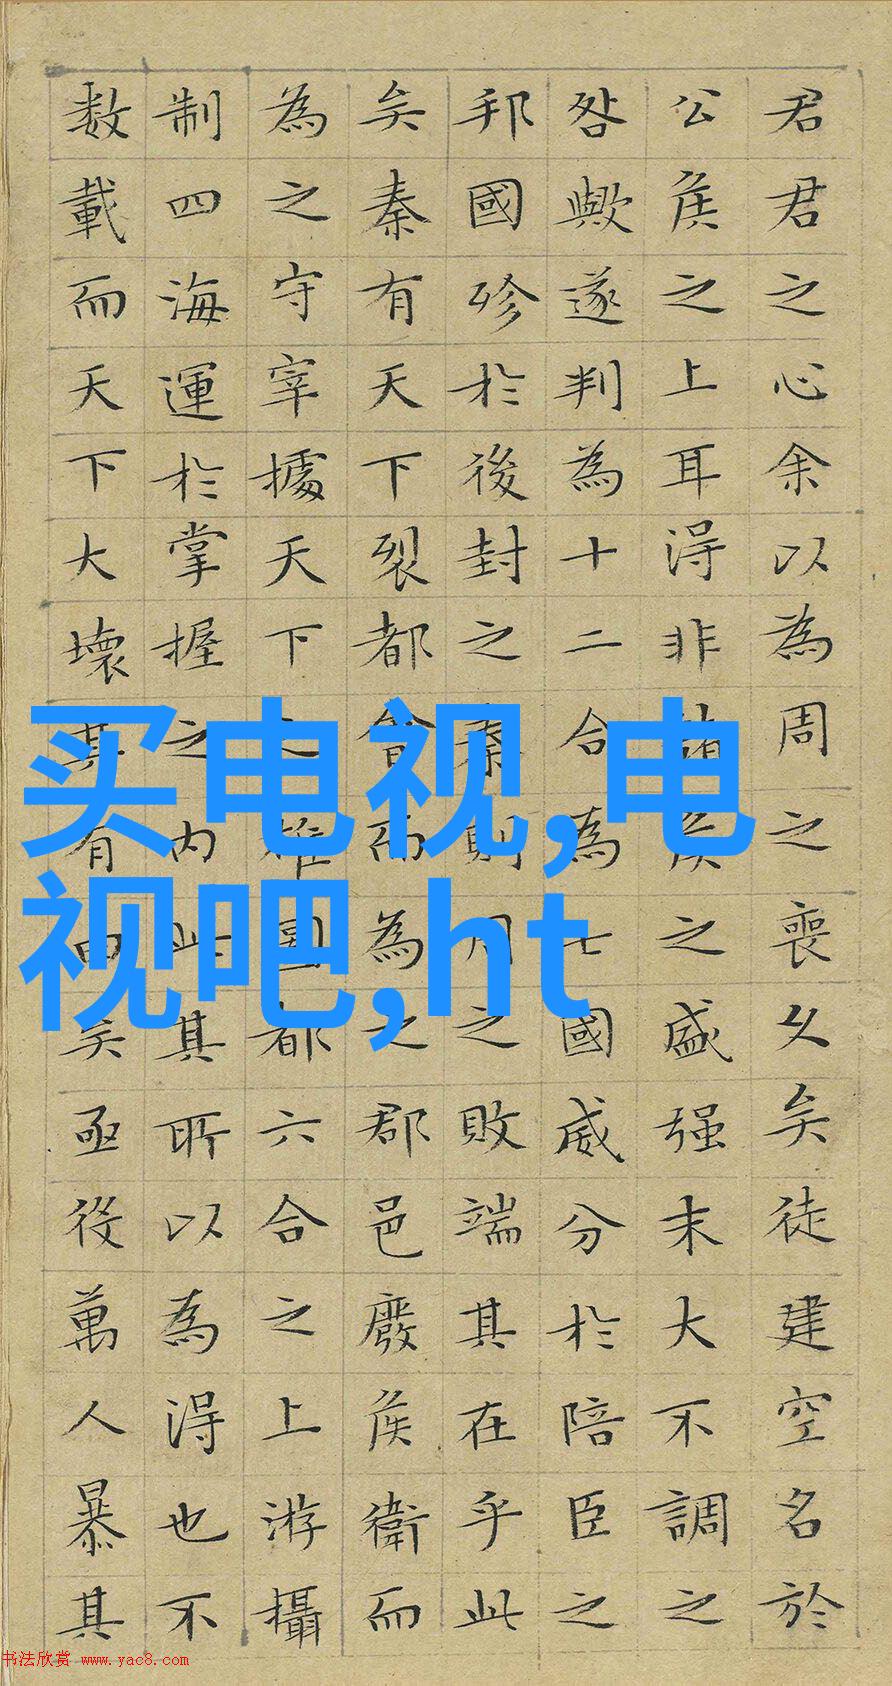 君君之心余以為周之喪久矣徒建空名於
公侯之上耳得非諸侯之盛强末大不調之
咎歟遂判為十二合為七國威分於陪臣之
邦國殄於後封之秦則周之敗端其在乎此
矣秦有天下裂都會而為之郡邑廢侯衛而
為之守宰據天下之雄圖都六合之上游攝
制四海運於掌握之内此其所以為得也不
数載而天下大壞其有由矣亟役萬人暴其
买电视,电
视吧,ht
书法欣赏 www.yac8.com